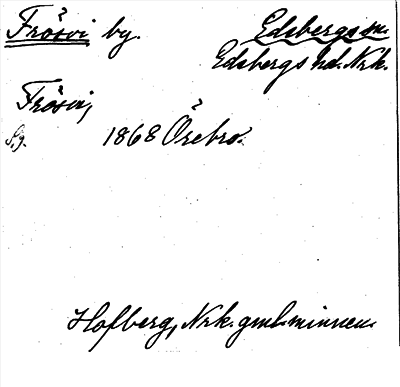 Frösvi by. Edsbergs sn.
Edsbergs hd. Nrk.
Frösvi,
Sg. 1868 Örebro.
Hofberg, Nrk. gml. minnen.